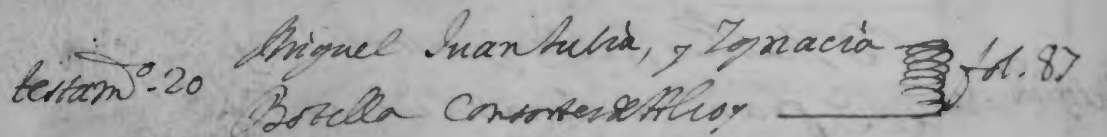 testam.º 20
Miguel Juan Julià, y Ygnacia
Botella Consortes de Alcoy
fol. 87